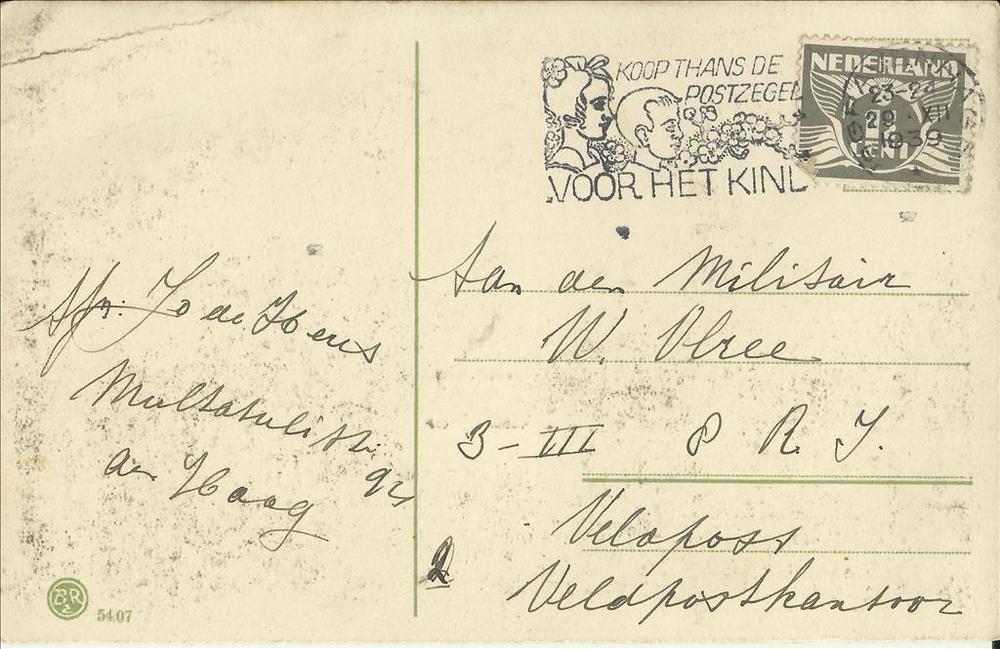 KOOP THANS DE
POSTZEGEL
VOOR HET KIND
NEDERLAND
23-24
29 XII
1939
1
CENT
Afz: Jo de Heus
Multatulistr.
92
den Haag
Aan den Militair
W. Vlree
3-III 8 R. I.
Veldpost
2 Veldpostkantoor
BR
2
5407